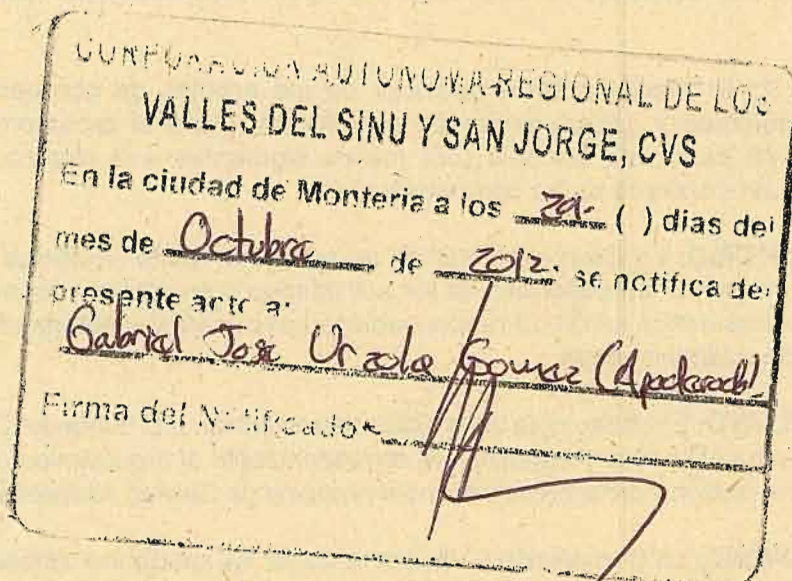 CORPORACION AUTONOMA REGIONAL DE LOS
VALLES DEL SINU Y SAN JORGE, CVS
En la ciudad de Monteria a los ( ) dias del
mes de Octubre de 2012. se notifica del
presente acto a:
Gabriel Jose Urzola Gomez (Apoderado)
Firma del Notificado